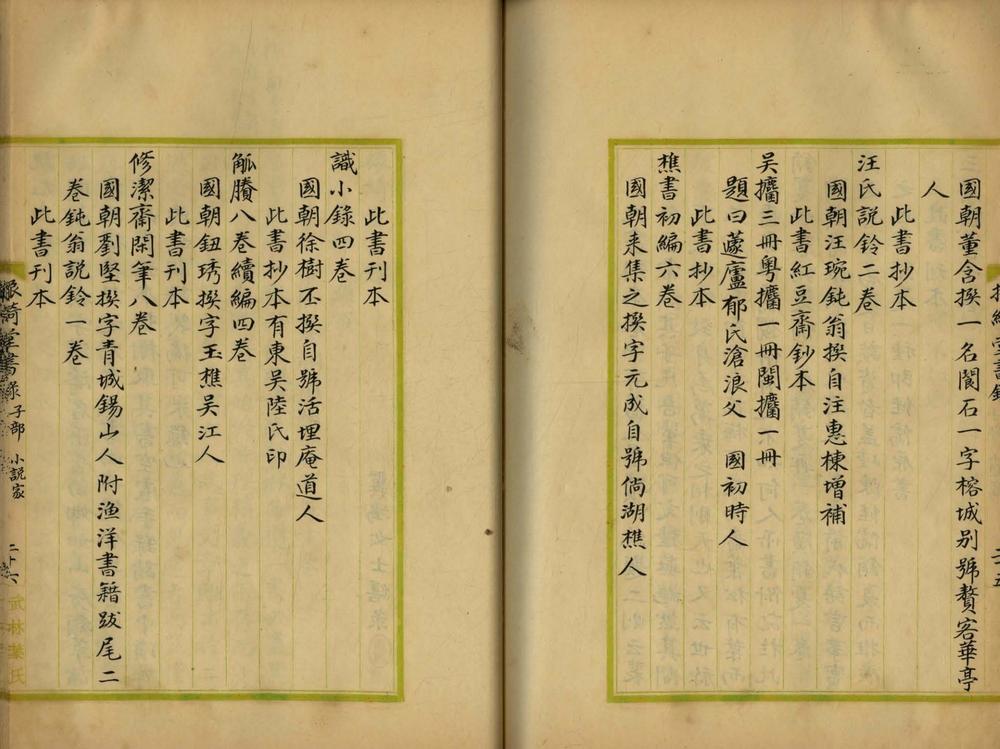 國朝董含撰一名閬石一字榕城别號贅客華亭
人
此書抄本
汪氏說鈴二巻
國朝汪琬鈍翁撰自注惠棟增補
此書紅豆齋鈔本
吴㩦三冊粤㩦一冊閩㩦一冊
題曰蘧廬郁氏滄浪父 國初時人
此書抄本
樵書初編六巻
國朝来集之撰字元成自號倘湖樵人
此書刊本
識小錄四巻
國朝徐樹丕撰自號活埋庵道人
此書抄本有東吴陸氏印
觚賸八巻續編四巻
國朝鈕琇撰字玉樵吴江人
此書刊本
修潔齋閑筆八巻
國朝劉堅撰字青城錫山人附漁洋書籍跋尾二
巻鈍翁説鈴一巻
此書刊本
子部 小說家
二十六
武林葉氏